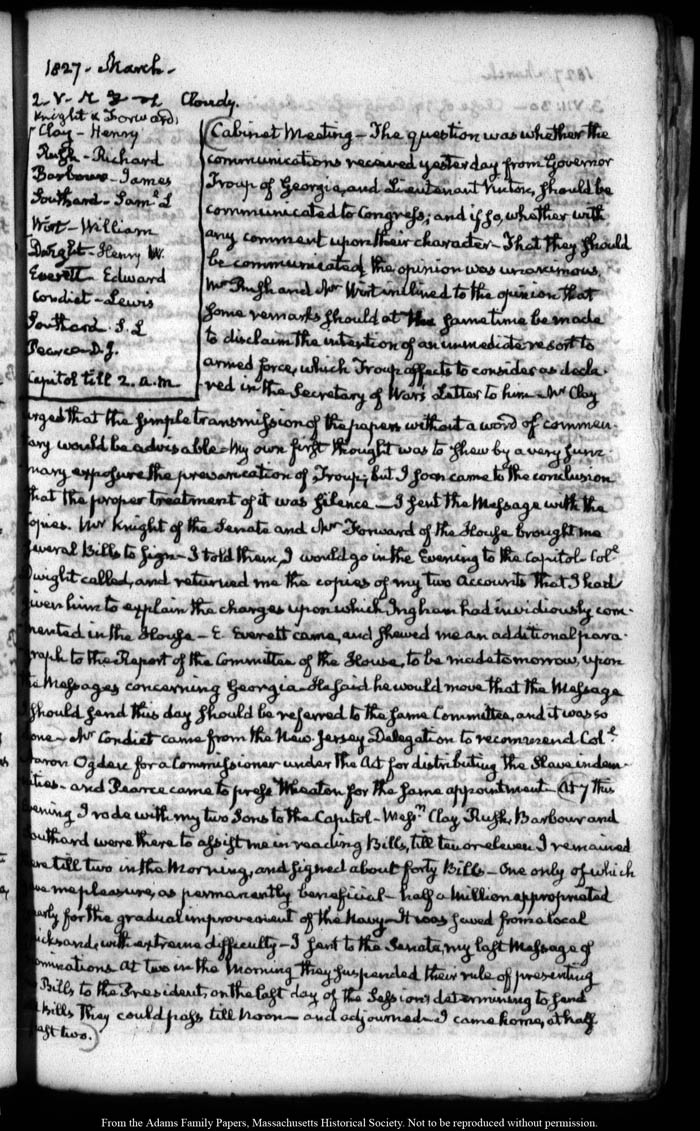 1827 - March -
2. V. Cloudy.
Knight & Forward
Clay - Henry
Rush - Richard
Barbour - James
Southard - Saml. L
Wirt - William
Dwight - Henry W.
Everett - Edward
Condict - Lewis
Southard. S. L
Pearce - D. J.
Capitol till 2. a.m.
Cabinet Meeting - The question was whether the
communications received yesterday from Governor
Troup of Georgia, and Lieutenant Vinton, should be
communicated to Congress; and if so, whether with
any comment upon their character - That they should
be communicated the opinion was unanimous,
Mr Rush and Mr Wirt inclined to the opinion that
some remarks should at the same time be made
to disclaim the intention of an immediate resort to
armed force, which Troup affects to consider as decla-
red in the Secretary of War's Letter to him - Mr Clay
urged that the simple transmission of the papers without a word of commen-
ary would be advisable - My own first thought was to shew by a very sum-
mary exposure the prevarication of Troup; but I soon came to the conclusion
that the proper treatment of it was silence - I sent the Message with the
opies. Mr Knight of the Senate and Mr Forward of the House brought me
several Bills to sign - I told them, I would go in the Evening to the Capitol - Col.
Dwight called, and returned me the copies of my two Accounts that I had
given him to explain the charges upon which Ingham had invidiously com-
mented in the House - E. Everett came, and shewed me an additional para-
raph to the Report of the Committee of the House, to be made tomorrow, upon
the Messages concerning Georgia - He said he would move that the Message
I should send this day should be referred to the same Committee, and it was so
one - Mr Condict came from the New Jersey Delegation to recommend Col.
Aaron Ogden for a Commissioner under the Act for distributing the Slave indem-
nities - and Pearce came to press Wheaton for the same appointment - At 7 this
evening I rode with my two Sons to the Capitol - Messrs Clay, Rush, Barbour and
outhard were there to assist me in reading Bills, till ten or eleven I remained
ere till two in the Morning, and signed about forty Bills - One only of which
ve me pleasure, as permanently beneficial - half a Million appropriated
early for the gradual improvement of the Navy - It was saved from a local
uicksand, with extreme difficulty - I sent to the Senate, my last Message of
ominations At two in the Morning they suspended their rule of presenting
Bills to the President, on the last day of the Session, determining to send
Bills They could pass till Noon - and adjourned - I came home, at half
past two.
From the Adams Family Papers, Massachusetts Historical Society. Not to be reproduced without permission.